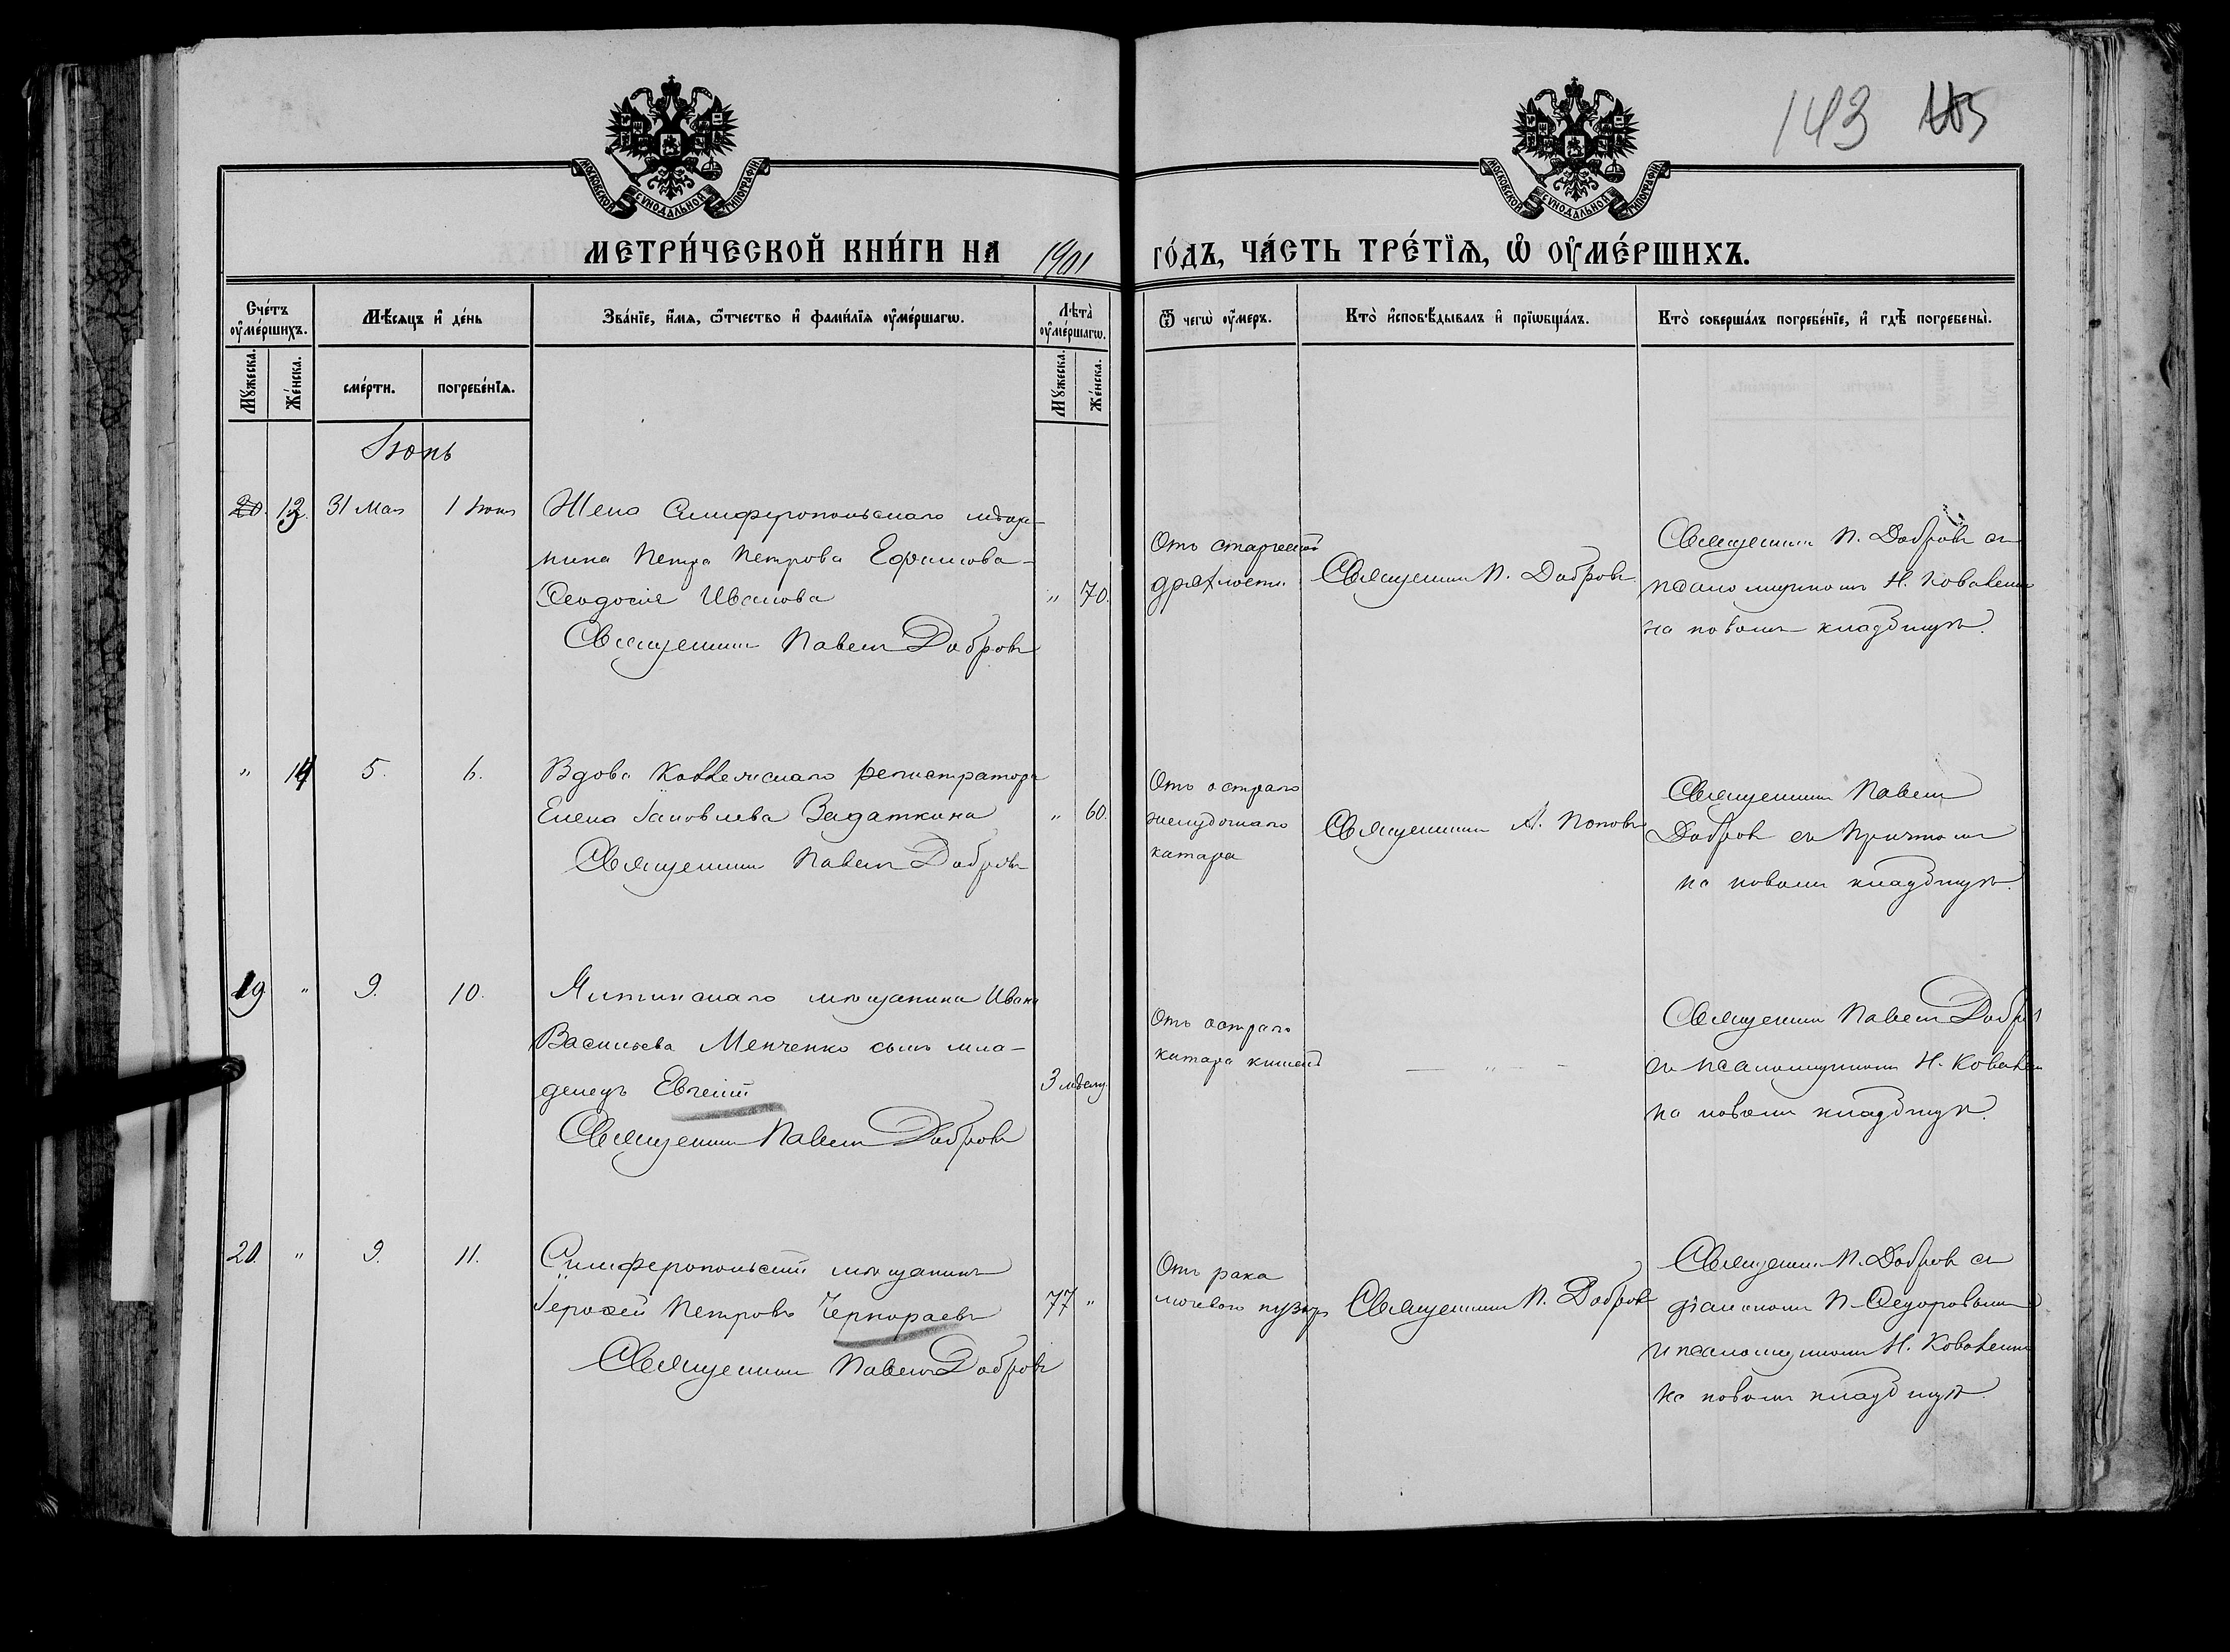 143 165
МОСКОВСКОЙ СѴНОДАЛЬНОЙ ТИПОГРАФІИ
МОСКОВСКОЙ СѴНОДАЛЬНОЙ ТИПОГРАФІИ
МЕТРИ́ЧЕСКОЙ КНИ́ГИ НА 1901 ГО́ДЪ, ЧА́СТЬ ТРЕ́ТЇѦ, Ѡ҆ ОУ҆МЕ́РШИХЪ.
Счетъ оу҆ме́ршихъ.
Мꙋ́жеска.
Же́нска.
Мѣ́сяцъ и҆ де́нь
сме́рти.
погребе́нїѧ.
Зва́нїе, и҆́мѧ, ѻ҆́тчество и҆ фами́лїѧ оу҆ме́ршагѡ.
Лѣта̀ оу҆ме́ршагѡ.
Мꙋ́жеска.
Же́нска.
Ѿ чегѡ̀ оу҆́меръ.
Кто̀ и҆сповѣ́дывалъ и҆ прїѡбща́лъ.
Кто̀ соверша́лъ погребе́нїе, и҆ гдѣ̀ погребены̀.
Іюнь
20. 13. 31 Мая 1 Іюня
Жена Симферопольскаго мѣща-
нина Петра Петрова Ефимова
Ѳеодосія Иванова
" 70.
Священникъ Павелъ Добровъ
Отъ старческой
дряхлости.
Священникъ П. Добровъ
Священникъ П. Добровъ съ
псаломщикомъ Н.
на новомъ кладбищѣ.
" 14 5. 6.
Вдова Коллежскаго регистратора
Елена Іаковлева Задаткина
" 60.
Священникъ Павелъ Добровъ
Отъ остраго
желудочнаго
катара
Священникъ А. Поповъ
Священникъ Павелъ
Добровъ съ причтомъ
на новомъ кладбищѣ.
19 " 9. 10.
Ялтинскаго мѣщанина Ивана
Васильева Менченко сынъ мла-
денецъ Евгеній
3 мѣсяц.
Священникъ Павелъ Добровъ
Отъ остраго
катара кишекъ
— " —
Священникъ Павелъ Добровъ
съ псаломщикомъ Н.
на новомъ кладбищѣ.
20. " 9. 11.
Симферопольскій мѣщанинъ
Іероѳей Петровъ Чернораевъ
77 "
Священникъ Павелъ Добровъ
Отъ рака
мочевого пузыря
Священникъ П. Добровъ
Священникъ П. Добровъ съ
діакономъ П. Ѳедоровымъ
и псаломщикомъ Н.
на новомъ кладбищѣ.